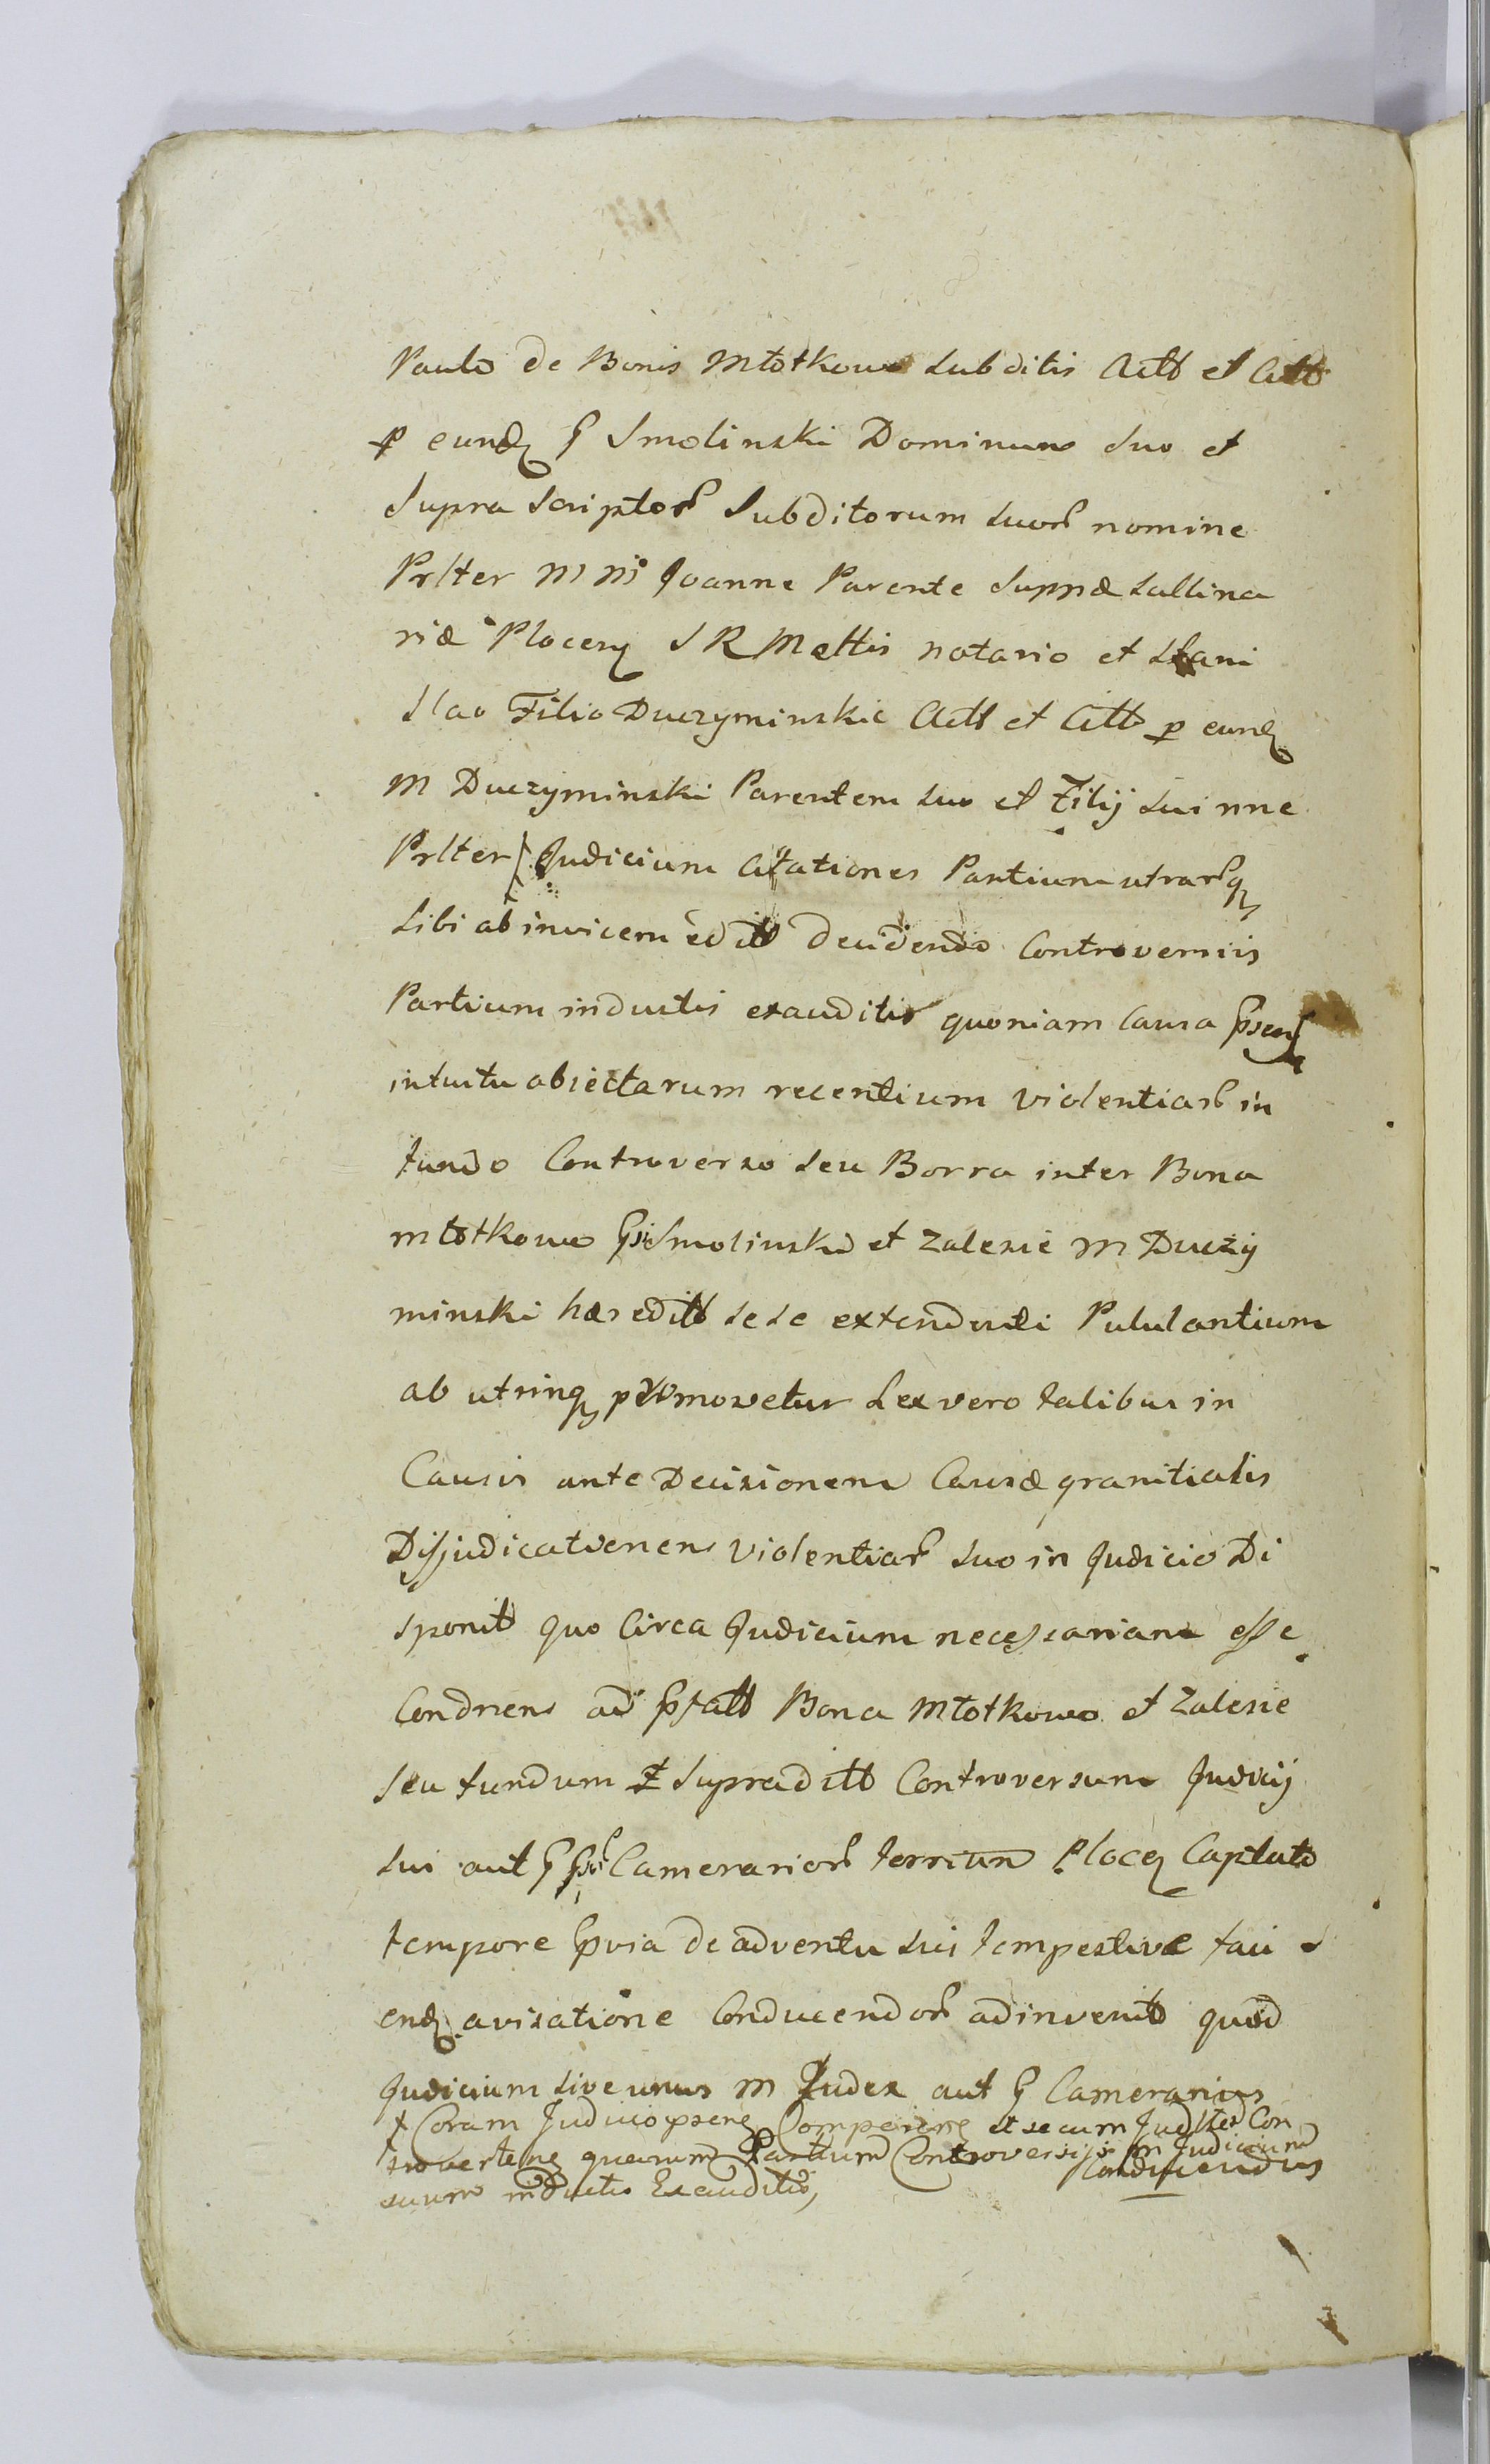 Paulo de Bonis Młotkowo Subditis Actt et Citt
p eund G Smolinski Dominum Suo et
Supra Scriptor Subditorum Suor nomine
Prlter M M Joanne Parente Suppæ Sallina
riæ Plocen S R Mattis notario et Stani
slao Filio Duczyminskie Actt et Citt p eund
M Duczyminski Parentem suo et Filij Sui nne
Prlter Judicium Citationes Partium utrarq
Sibi ab invicem editt decidendo Controversiis
Partium inductis exauditis quoniam Causa psens
intuitu abiectarum recentium violentiar in
fundo Controverso Seu Borra inter Bona
Młotkowo Gsi Smolinski et Zalesie M Duczy
minski hæreditt sese extendenti Pululantium
ab utrinq pmovetur Lex vero talibus in
Causis ante Decisionem Causæ granitialis
Disjudicationem violentiar suo in Judicio Di
sponit quo Circa Judicium necessariam esse
Condnem ad pfatt Bona Młotkowo et Zalesie
Seu fundum Supraditt Controversum Judicij
Sui aut G Camerarior terrium Plocen Captato
tempore pvia de adventu sui tempestive faci
end avisatione Conducendor adinvenit quod
Judicium sive unus M Judex aut G Camerarius
Conducendus
+ Coram Judicio psene Comparen et secum Judlter Con
troverten quarum Partium Controversijs in Judicium
suum inductis Exauditis,